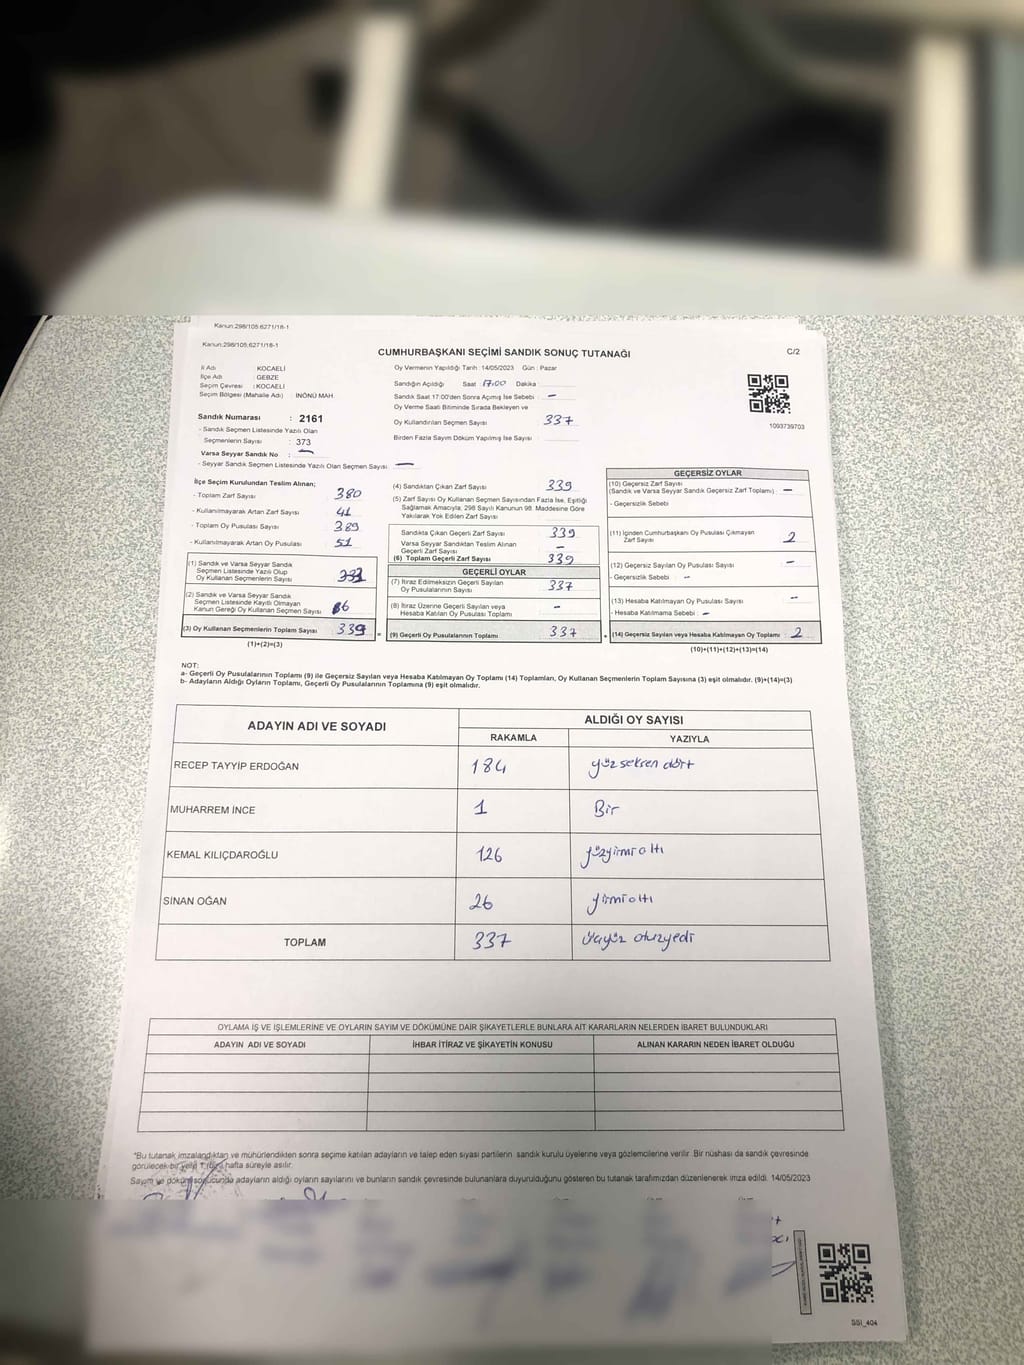 Kanun:298/105;6271/18-1
Kanun:298/105;6271/18-1
CUMHURBAŞKANI SEÇİMİ SANDIK SONUÇ TUTANAĞI
C/2
İl Adı : KOCAELİ
İlçe Adı : GEBZE
Seçim Çevresi : KOCAELİ
Seçim Bölgesi (Mahalle Adı) : İNÖNÜ MAH.
Sandık Numarası : 2161
- Sandık Seçmen Listesinde Yazılı Olan
Seçmenlerin Sayısı : 373
Varsa Seyyar Sandık No : —
- Seyyar Sandık Seçmen Listesinde Yazılı Olan Seçmen Sayısı —
Oy Vermenin Yapıldığı Tarih :14/05/2023 Gün : Pazar
Sandığın Açıldığı Saat 17:00 Dakika
Sandık Saat 17:00'den Sonra Açılmış İse Sebebi : —
Oy Verme Saati Bitiminde Sırada Bekleyen ve
Oy Kullandırılan Seçmen Sayısı 337
Birden Fazla Sayım Döküm Yapılmış İse Sayısı
1093739703
İlçe Seçim Kurulundan Teslim Alınan;
- Toplam Zarf Sayısı 380
- Kullanılmayarak Artan Zarf Sayısı 41
- Toplam Oy Pusulası Sayısı 389
- Kullanılmayarak Artan Oy Pusulası 51
(1) Sandık ve Varsa Seyyar Sandık
Seçmen Listesinde Yazılı Olup
Oy Kullanan Seçmenlerin Sayısı
(2) Sandık ve Varsa Seyyar Sandık
Seçmen Listesinde Kayıtlı Olmayan
Kanun Gereği Oy Kullanan Seçmen Sayısı 6
(3) Oy Kullanan Seçmenlerin Toplam Sayısı 339
(1)+(2)=(3)
(4) Sandıktan Çıkan Zarf Sayısı 339
(5) Zarf Sayısı Oy Kullanan Seçmen Sayısından Fazla İse, Eşitliği
Sağlamak Amacıyla; 298 Sayılı Kanunun 98. Maddesine Göre
Yakılarak Yok Edilen Zarf Sayısı
Sandıkta Çıkan Geçerli Zarf Sayısı 339
Varsa Seyyar Sandıktan Teslim Alınan
Geçerli Zarf Sayısı —
(6) Toplam Geçerli Zarf Sayısı 339
GEÇERLİ OYLAR
(7) İtiraz Edilmeksizin Geçerli Sayılan
Oy Pusulalarının Sayısı 337
(8) İtiraz Üzerine Geçerli Sayılan veya
Hesaba Katılan Oy Pusulası Toplamı —
= (9) Geçerli Oy Pusulalarının Toplamı 337
GEÇERSİZ OYLAR
(10) Geçersiz Zarf Sayısı
(Sandık ve Varsa Seyyar Sandık Geçersiz Zarf Toplamı) —
- Geçersizlik Sebebi
(11) İçinden Cumhurbaşkanı Oy Pusulası Çıkmayan
Zarf Sayısı 2
(12) Geçersiz Sayılan Oy Pusulası Sayısı —
- Geçersizlik Sebebi —
(13) Hesaba Katılmayan Oy Pusulası Sayısı —
- Hesaba Katılmama Sebebi : —
+ (14) Geçersiz Sayılan veya Hesaba Katılmayan Oy Toplamı 2
(10)+(11)+(12)+(13)=(14)
NOT:
a- Geçerli Oy Pusulalarının Toplamı (9) ile Geçersiz Sayılan veya Hesaba Katılmayan Oy Toplamı (14) Toplamları, Oy Kullanan Seçmenlerin Toplam Sayısına (3) eşit olmalıdır. (9)+(14)=(3)
b- Adayların Aldığı Oyların Toplamı, Geçerli Oy Pusulalarının Toplamına (9) eşit olmalıdır.
ADAYIN ADI VE SOYADI
ALDIĞI OY SAYISI
RAKAMLA YAZIYLA
RECEP TAYYİP ERDOĞAN 184 yüz seksen dört
MUHARREM İNCE 1 Bir
KEMAL KILIÇDAROĞLU 126 yüzyirmialtı
SİNAN OĞAN 26 yirmialtı
TOPLAM 337 üçyüz otuzyedi
OYLAMA İŞ VE İŞLEMLERİNE VE OYLARIN SAYIM VE DÖKÜMÜNE DAİR ŞİKAYETLERLE BUNLARA AİT KARARLARIN NELERDEN İBARET BULUNDUKLARI
ADAYIN ADI VE SOYADI İHBAR İTİRAZ VE ŞİKAYETİN KONUSU ALINAN KARARIN NEDEN İBARET OLDUĞU
*Bu tutanak imzalandıktan ve mühürlendikten sonra seçime katılan adayların ve talep eden siyasi partilerin sandık kurulu üyelerine veya gözlemcilerine verilir. Bir nüshası da sandık çevresinde
görülecek bir yere 1 (bir) hafta süreyle asılır.
Sayım ve döküm sonucunda adayların aldığı oyların sayılarını ve bunların sandık çevresinde bulunanlara duyurulduğunu gösteren bu tutanak tarafımızdan düzenlenerek imza edildi. 14/05/2023
SSI_404